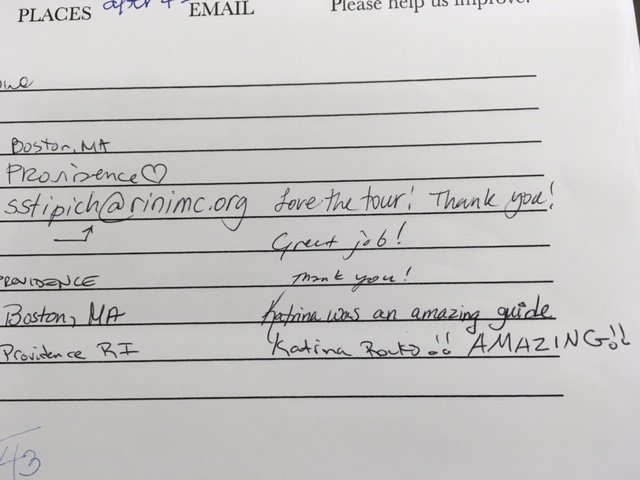 PLACES after 4 EMAIL Please help us improve.
Boston, MA
Providence♡
sstipich@rinimc.org Love the tour! Thank you!
Great job!
PROVIDENCE Thank you!
Boston, MA Katrina was an amazing guide
Providence RI Katrina Rocks!! AMAZING!!
43